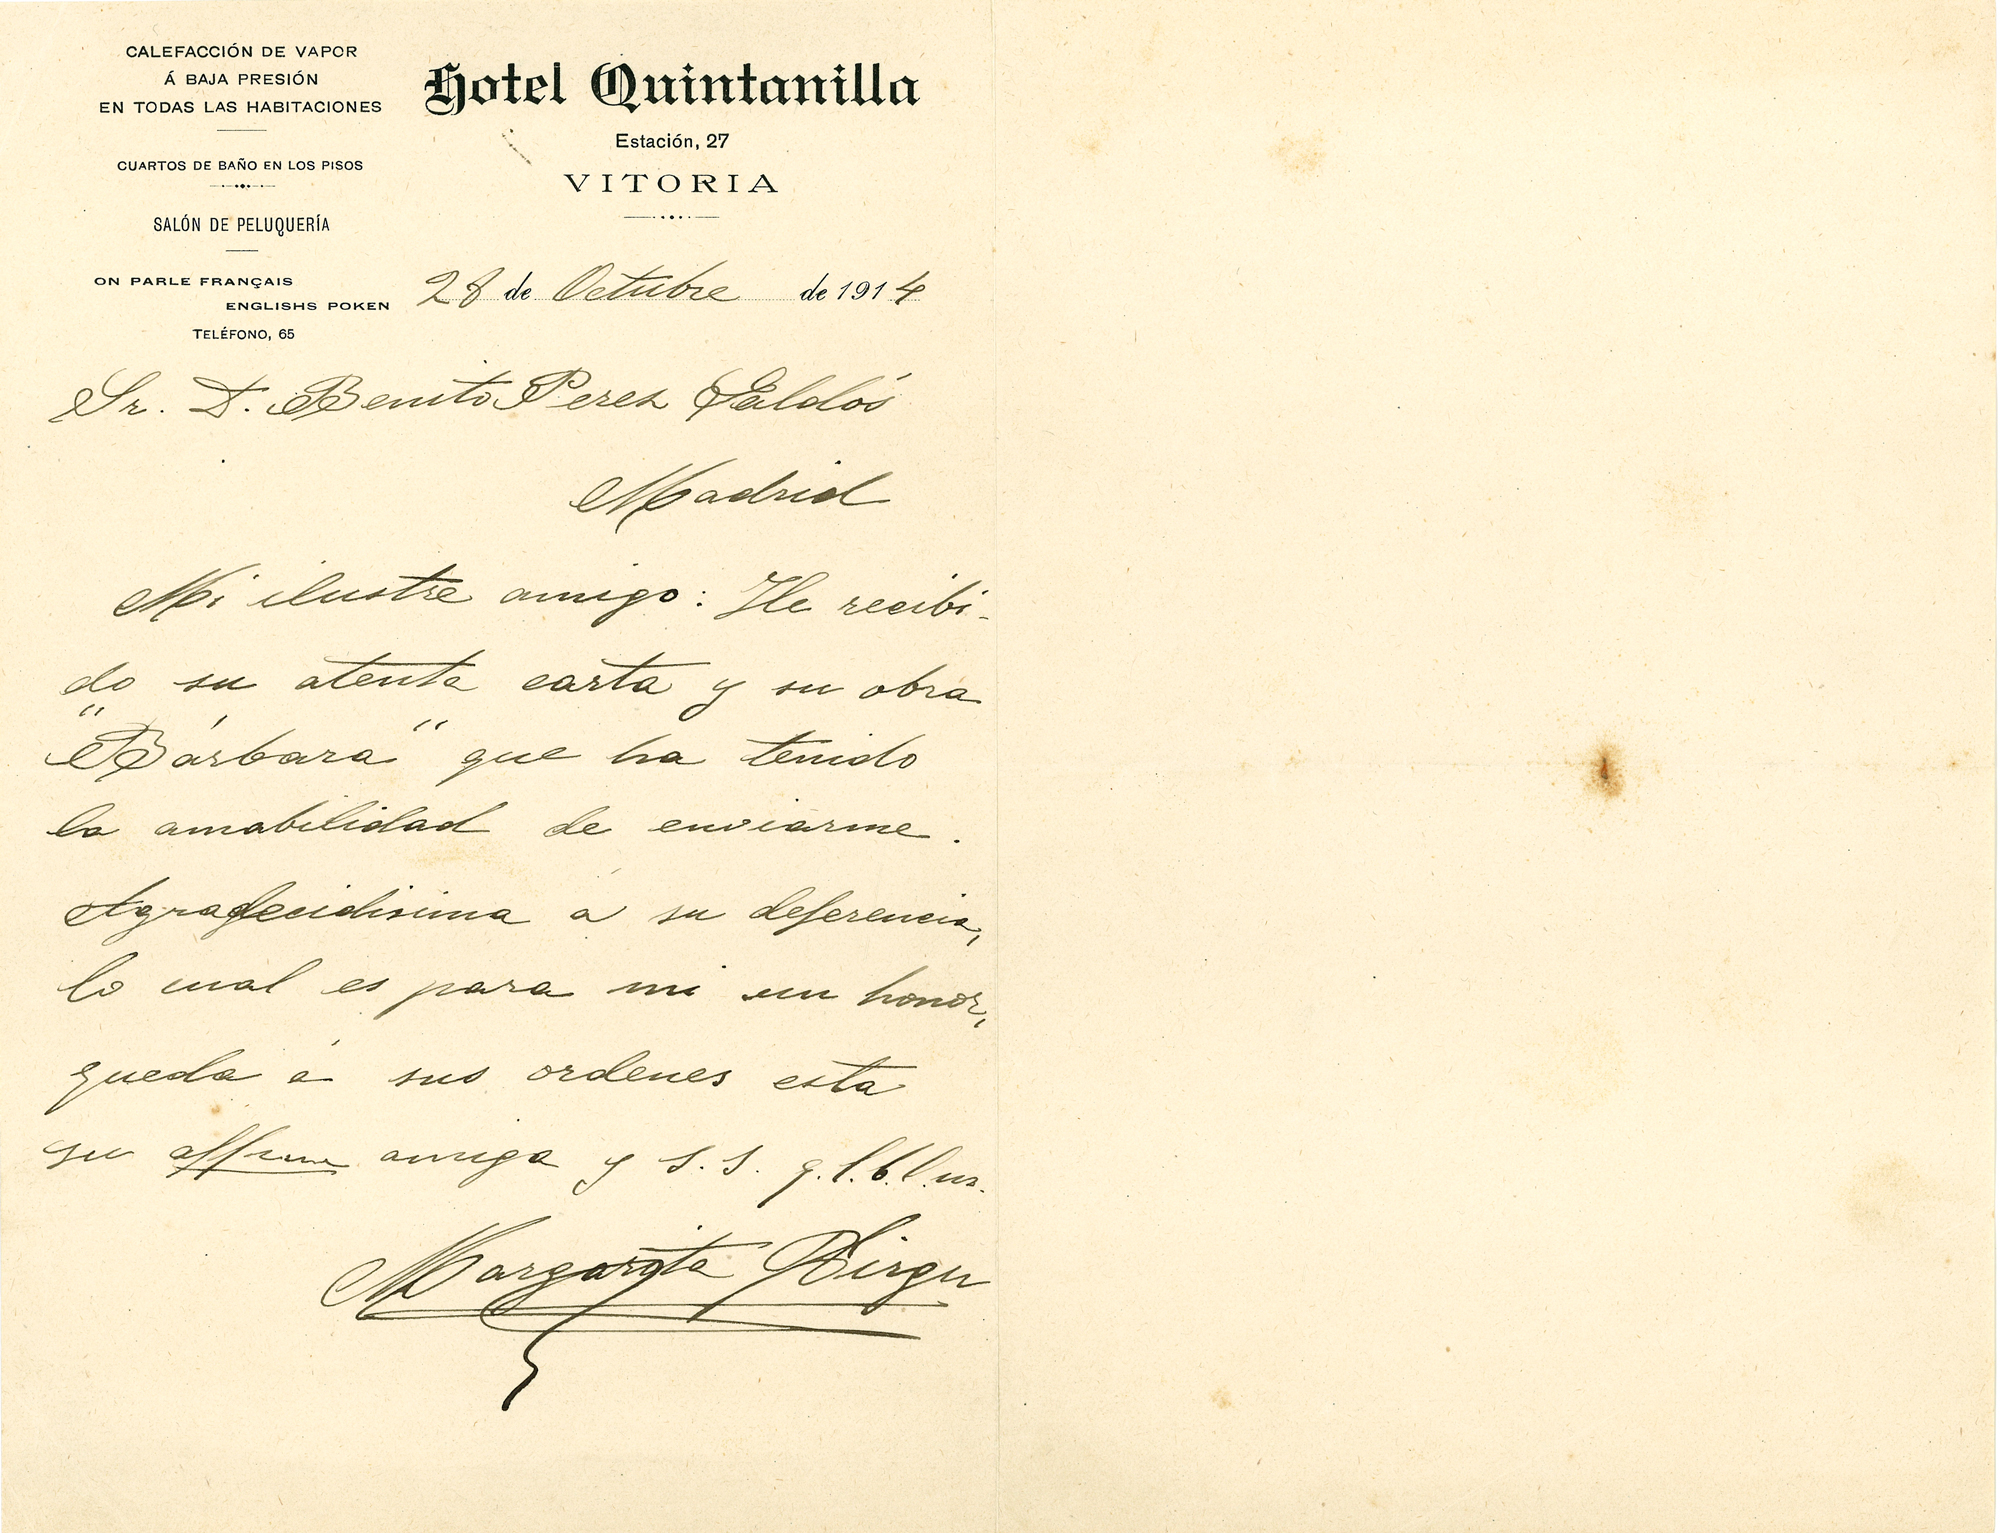 CALEFACCIÓN DE VAPOR
Á BAJA PRESIÓN
EN TODAS LAS HABITACIONES
CUARTOS DE BAÑO EN LOS PISOS
SALÓN DE PELUQUERÍA
ON PARLE FRANÇAIS
ENGLISHS POKEN
TELÉFONO, 65
Hotel Quintanilla
Estación, 27
VITORIA
28 de Octubre de 1914
Sr. D. Benito Perez Galdós
Madrid
Mi ilustre amigo: He recibi-
do su atenta carta y su obra
"Bárbara" que ha tenido
la amabilidad de enviarme.
Agradecidisima á su deferencia,
lo cual es para mi un honor,
queda á sus ordenes esta
su affma amiga y s. s. q. l. b. l. m.
Margarita Xirgu